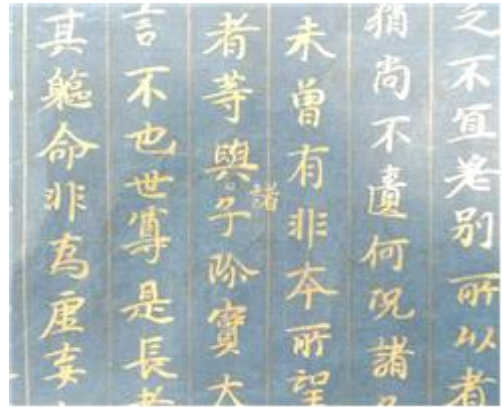 之不宜差別所以者
猶尚不匱何況諸
未曾有非本所望
者等與諸子珍寶大
言不也世尊是長者
其軀命非為虛妄